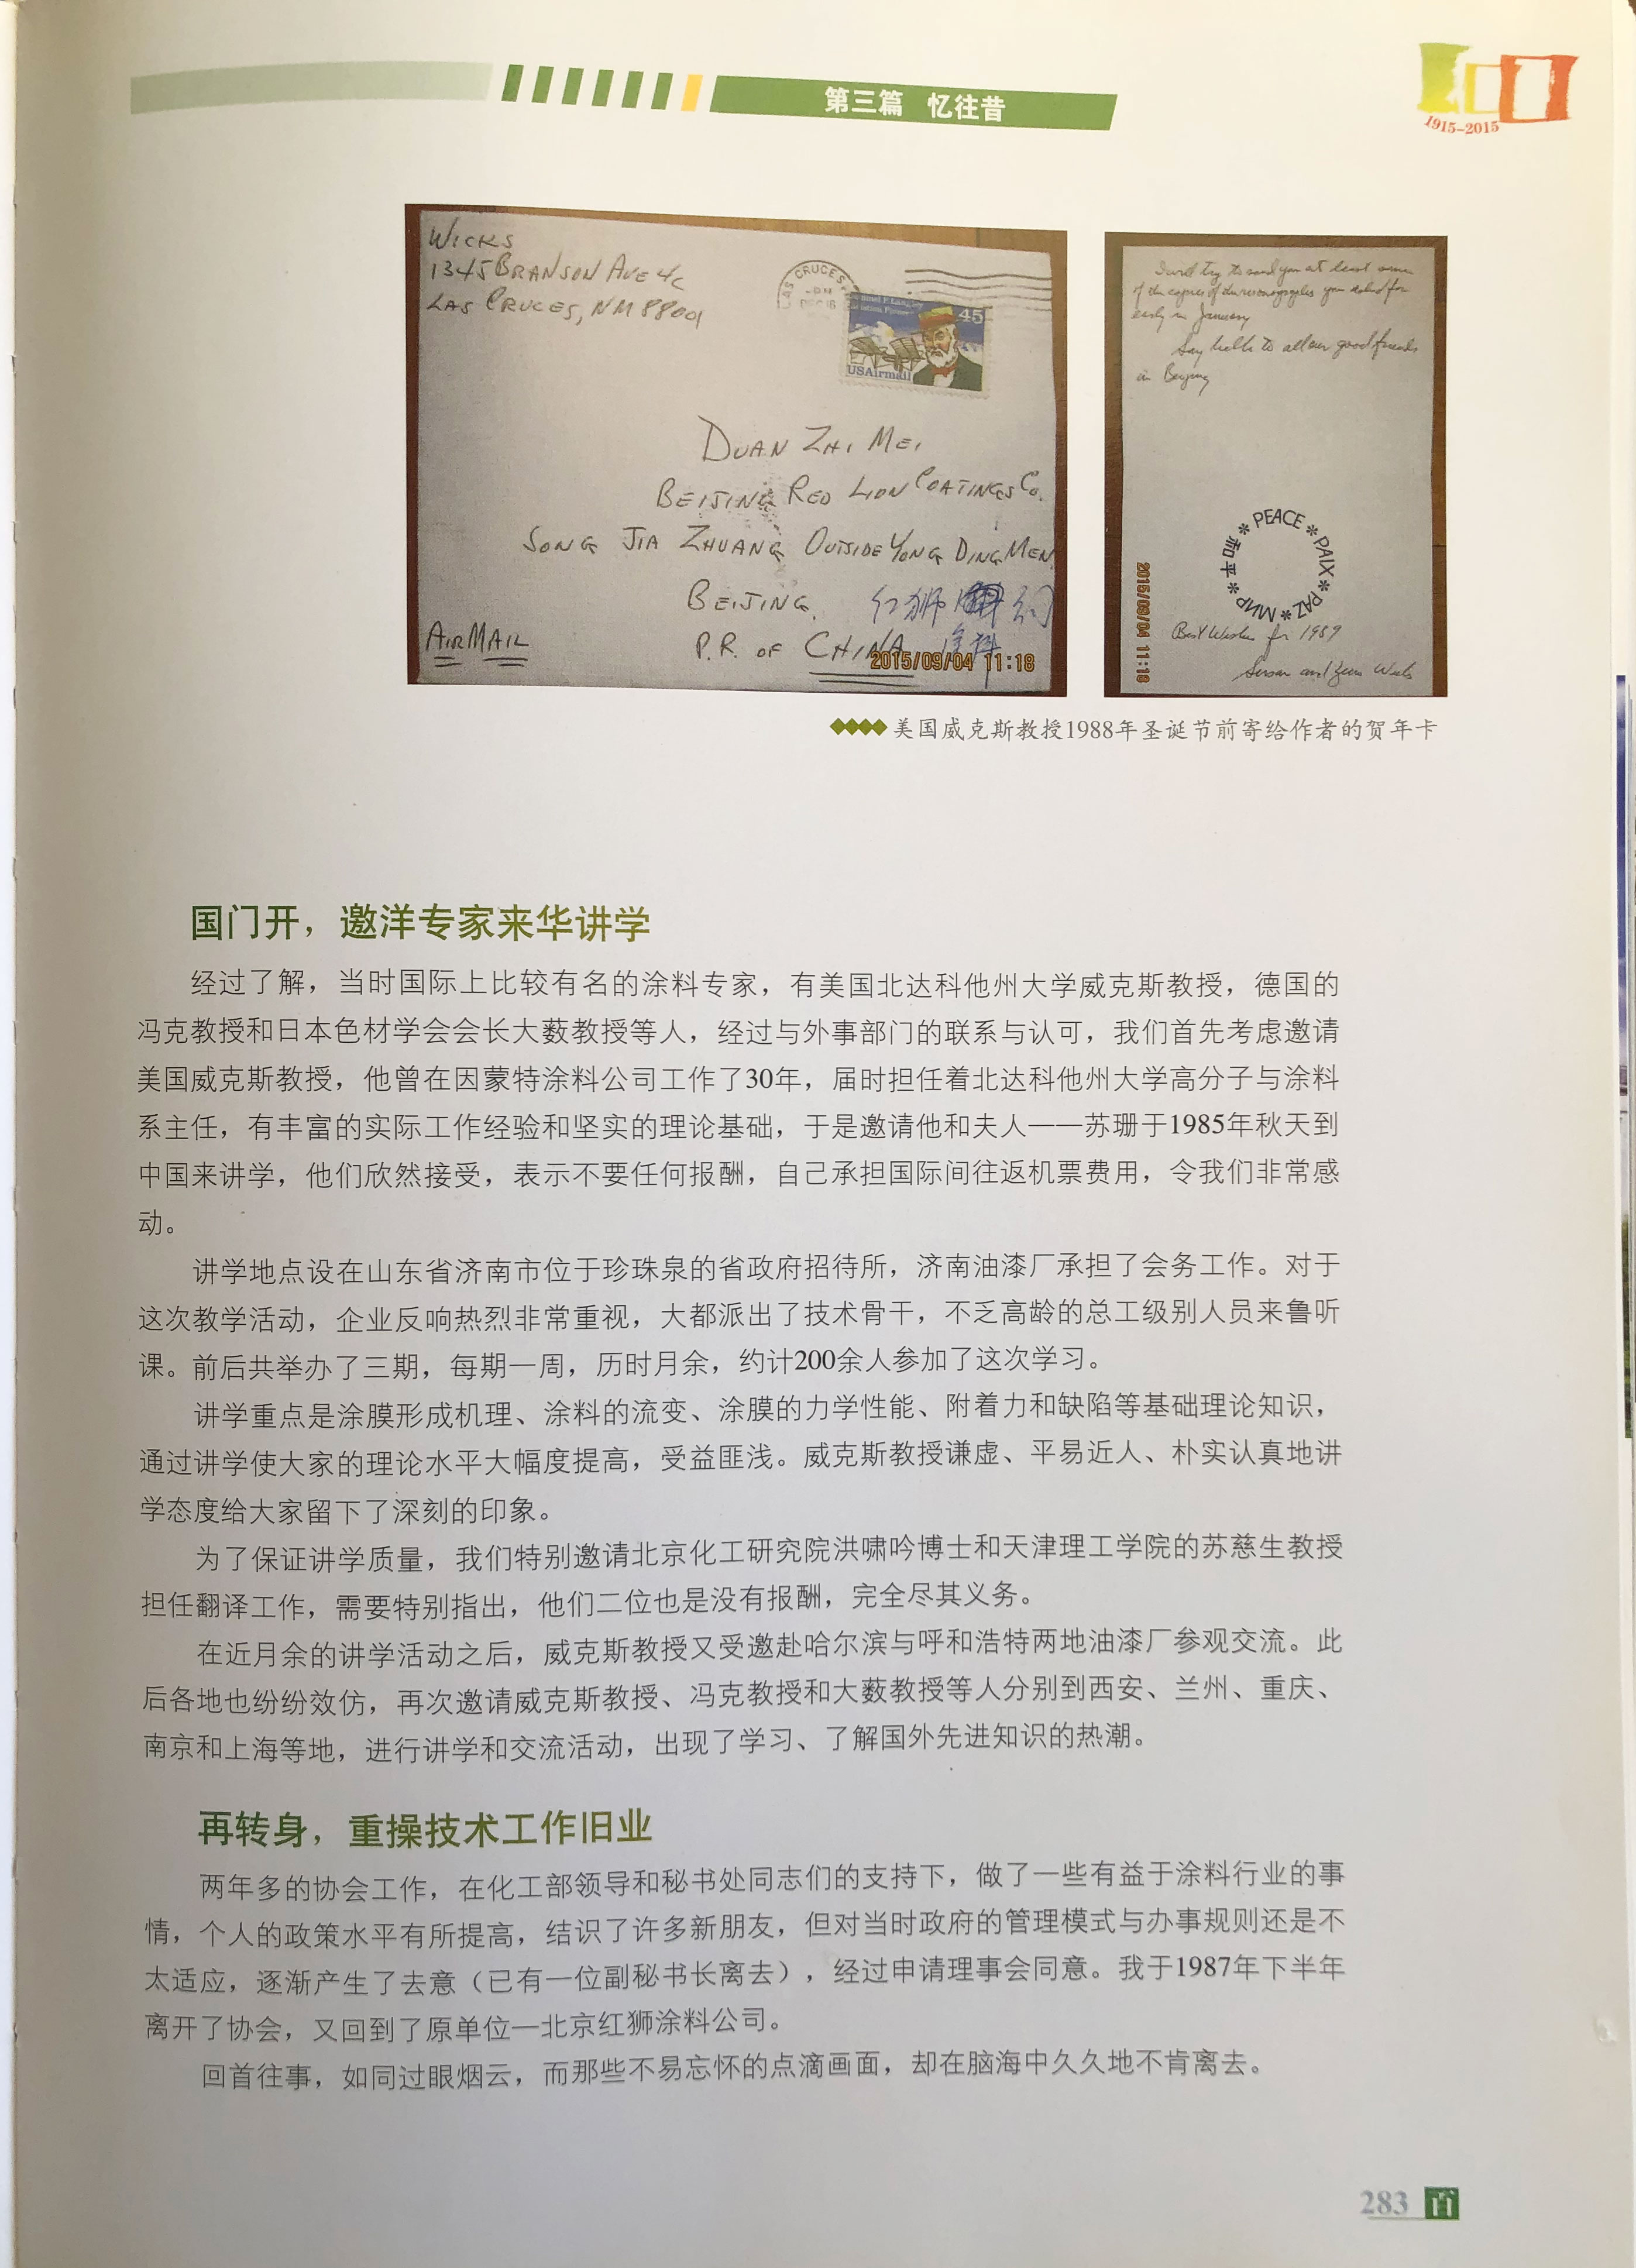 第三篇 忆往昔
1915-2015
WICKS
1345 BRANSON AVE 4C
LAS CRUCES, NM 88001
LAS CRUCES
PM
DEC 16
45
USAirmail
DUAN ZHI MEI
BEIJING RED LION COATINGS CO.
SONG JIA ZHUANG OUTSIDE YONG DING MEN
BEIJING
红狮
P.R. OF CHINA
AIRMAIL
2015/09/04 11:18
I will try to send you at least some
of the copies of the monographs you asked for
early in January
Say hello to all our good friends
in Beijing
* PEACE * PAIX * PAZ * МИР * 和平
2015/09/04 11:18
Best Wishes for 1989
Susan and Zeno Wicks
美国威克斯教授1988年圣诞节前寄给作者的贺年卡
国门开，邀洋专家来华讲学
经过了解，当时国际上比较有名的涂料专家，有美国北达科他州大学威克斯教授，德国的
冯克教授和日本色材学会会长大薮教授等人，经过与外事部门的联系与认可，我们首先考虑邀请
美国威克斯教授，他曾在因蒙特涂料公司工作了30年，届时担任着北达科他州大学高分子与涂料
系主任，有丰富的实际工作经验和坚实的理论基础，于是邀请他和夫人——苏珊于1985年秋天到
中国来讲学，他们欣然接受，表示不要任何报酬，自己承担国际间往返机票费用，令我们非常感
动。
讲学地点设在山东省济南市位于珍珠泉的省政府招待所，济南油漆厂承担了会务工作。对于
这次教学活动，企业反响热烈非常重视，大都派出了技术骨干，不乏高龄的总工级别人员来鲁听
课。前后共举办了三期，每期一周，历时月余，约计200余人参加了这次学习。
讲学重点是涂膜形成机理、涂料的流变、涂膜的力学性能、附着力和缺陷等基础理论知识，
通过讲学使大家的理论水平大幅度提高，受益匪浅。威克斯教授谦虚、平易近人、朴实认真地讲
学态度给大家留下了深刻的印象。
为了保证讲学质量，我们特别邀请北京化工研究院洪啸吟博士和天津理工学院的苏慈生教授
担任翻译工作，需要特别指出，他们二位也是没有报酬，完全尽其义务。
在近月余的讲学活动之后，威克斯教授又受邀赴哈尔滨与呼和浩特两地油漆厂参观交流。此
后各地也纷纷效仿，再次邀请威克斯教授、冯克教授和大薮教授等人分别到西安、兰州、重庆、
南京和上海等地，进行讲学和交流活动，出现了学习、了解国外先进知识的热潮。
再转身，重操技术工作旧业
两年多的协会工作，在化工部领导和秘书处同志们的支持下，做了一些有益于涂料行业的事
情，个人的政策水平有所提高，结识了许多新朋友，但对当时政府的管理模式与办事规则还是不
太适应，逐渐产生了去意（已有一位副秘书长离去），经过申请理事会同意。我于1987年下半年
离开了协会，又回到了原单位—北京红狮涂料公司。
回首往事，如同过眼烟云，而那些不易忘怀的点滴画面，却在脑海中久久地不肯离去。
283 百